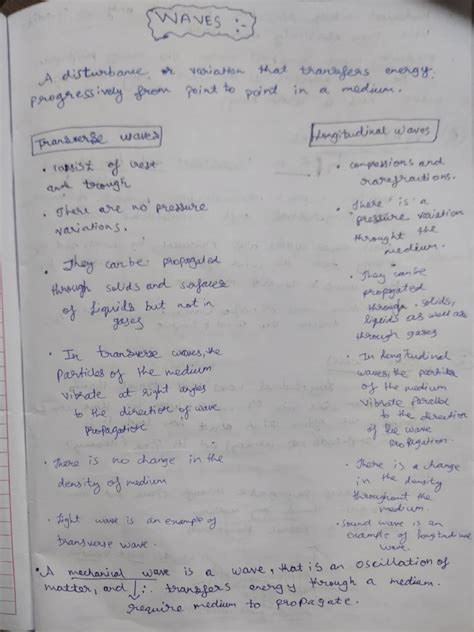 WAVES :-
A disturbance, or variation that transfers energy
progressively from point to point in a medium.
Transverse waves
• consist of crest
and trough
• There are no pressure
variations.
• They can be propagated
through solids and surfaces
of liquids but not in
gases
• In transverse waves, the
particles of the medium
vibrate at right angles
to the direction of wave
propagation
• There is no change in the
density of medium
• Light wave is an example of
transverse wave.
Longitudinal waves
• compressions and
rarefractions.
• There is a
pressure variation
throught the
medium.
• They can be
propagated
through solids,
liquids as well as
through gases
• In longitudinal
waves, the particles
of the medium
vibrate parallel
to the direction
of the wave
propagation.
• There is a change
in the density
throughout the
medium.
• Sound wave is an
example of longitudinal
wave
• A mechanical wave is a wave, that is an oscillation of
matter, and ∴ transfers energy through a medium.
require medium to propagate.